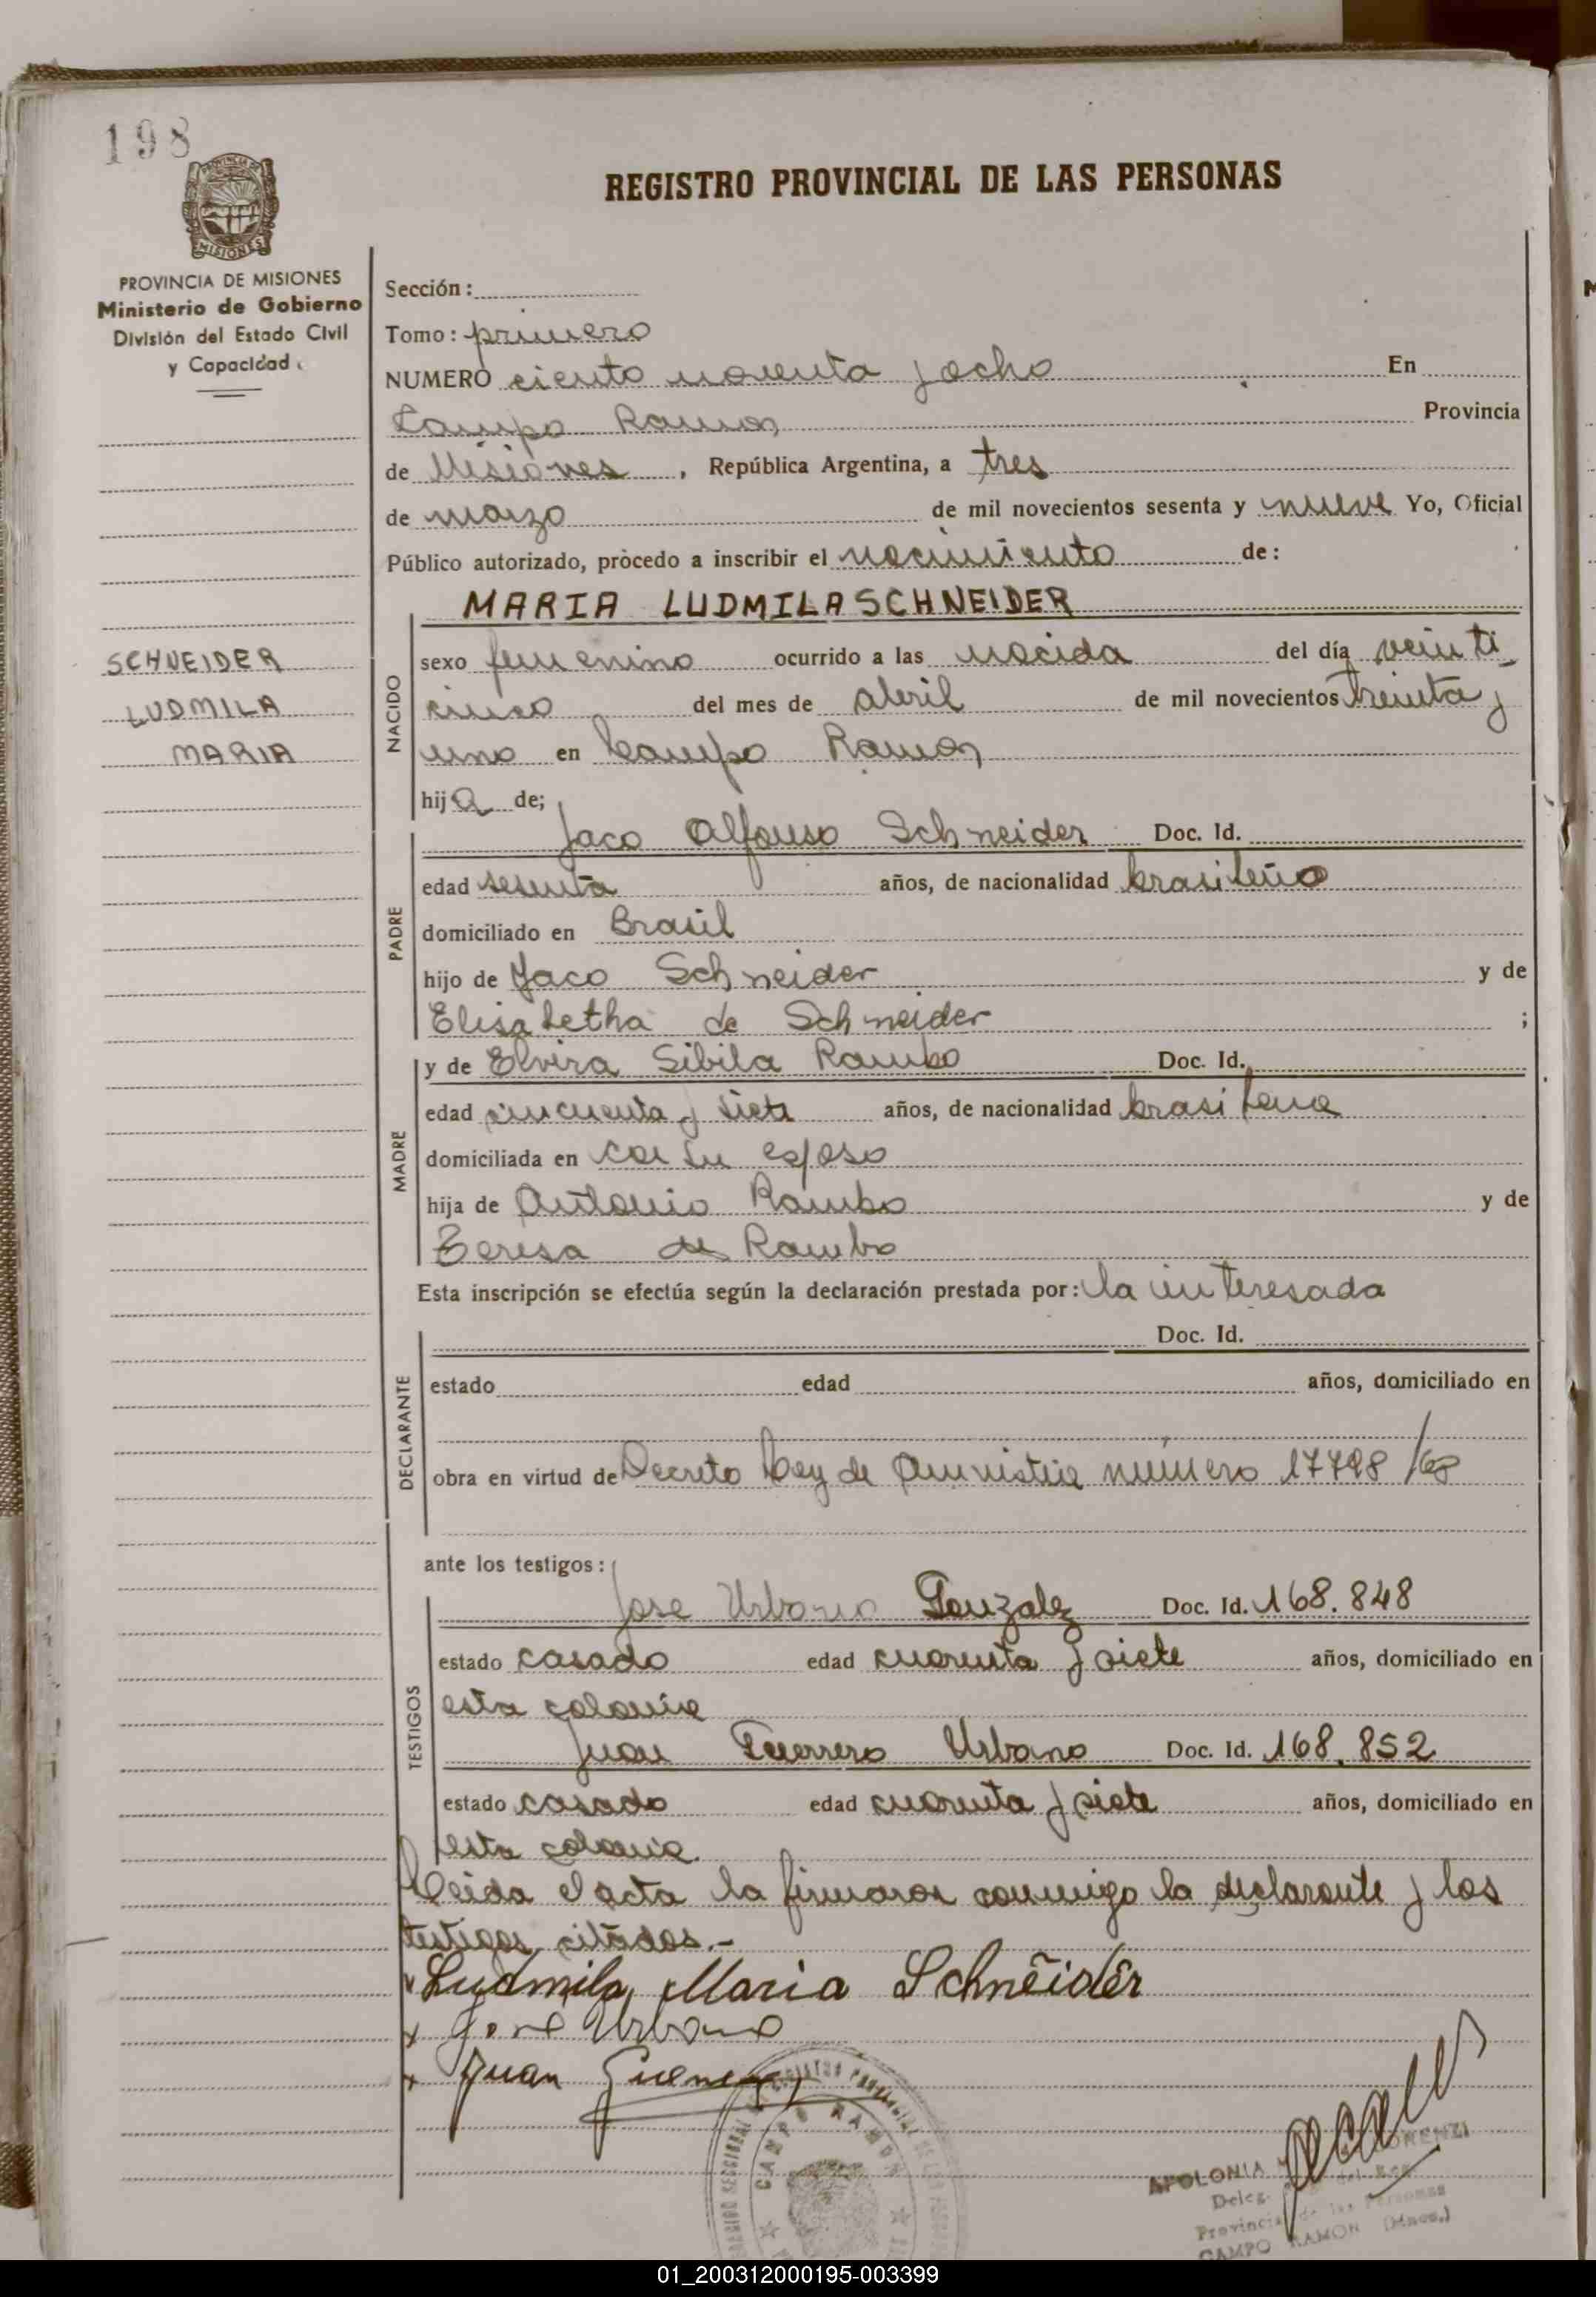 198
PROVINCIA DE MISIONES
PROVINCIA DE MISIONES
Ministerio de Gobierno
División del Estado Civil
y Capacidad
SCHNEIDER
LUDMILA
MARIA
REGISTRO PROVINCIAL DE LAS PERSONAS
Sección:
Tomo: primero
NUMERO ciento noventa y ocho En
Campo Ramon Provincia
de Misiones, República Argentina, a tres
de marzo de mil novecientos sesenta y nueve Yo, Oficial
Público autorizado, procedo a inscribir el nacimiento de:
MARIA LUDMILA SCHNEIDER
NACIDO
sexo femenino ocurrido a las nacida del día veinti
cinco del mes de abril de mil novecientos treinta y
uno en Campo Ramon
hija de;
PADRE
Jaco Alfonso Schneider Doc. Id.
edad sesenta años, de nacionalidad brasileño
domiciliado en Brasil
hijo de Jaco Schneider y de
Elisabetha de Schneider ;
MADRE
y de Elvira Sibila Rambo Doc. Id.
edad cincuenta y siete años, de nacionalidad brasilena
domiciliada en con su esposo
hija de Antonio Rambo y de
Teresa de Rambo
Esta inscripción se efectúa según la declaración prestada por: la interesada
DECLARANTE
Doc. Id.
estado edad años, domiciliado en
obra en virtud de Decreto Ley de Amnistia número /68
ante los testigos:
TESTIGOS
Jose Urbano Gonzalez Doc. Id. 168.848
estado casado edad cuarenta y siete años, domiciliado en
esta colonia
Juan Guerrero Urbano Doc. Id. 168.852
estado casado edad cuarenta y siete años, domiciliado en
esta colonia.
Leida el acta la firmaron conmigo la declarante y los
testigos citados.-
Ludmila Maria Schneider
x Jose Urbano
x Juan Guerrero
CAMPO RAMON
APOLONIA
Deleg. del Reg.
Provincial de las Personas
CAMPO RAMON (Mnes.)
01_200312000195-003399